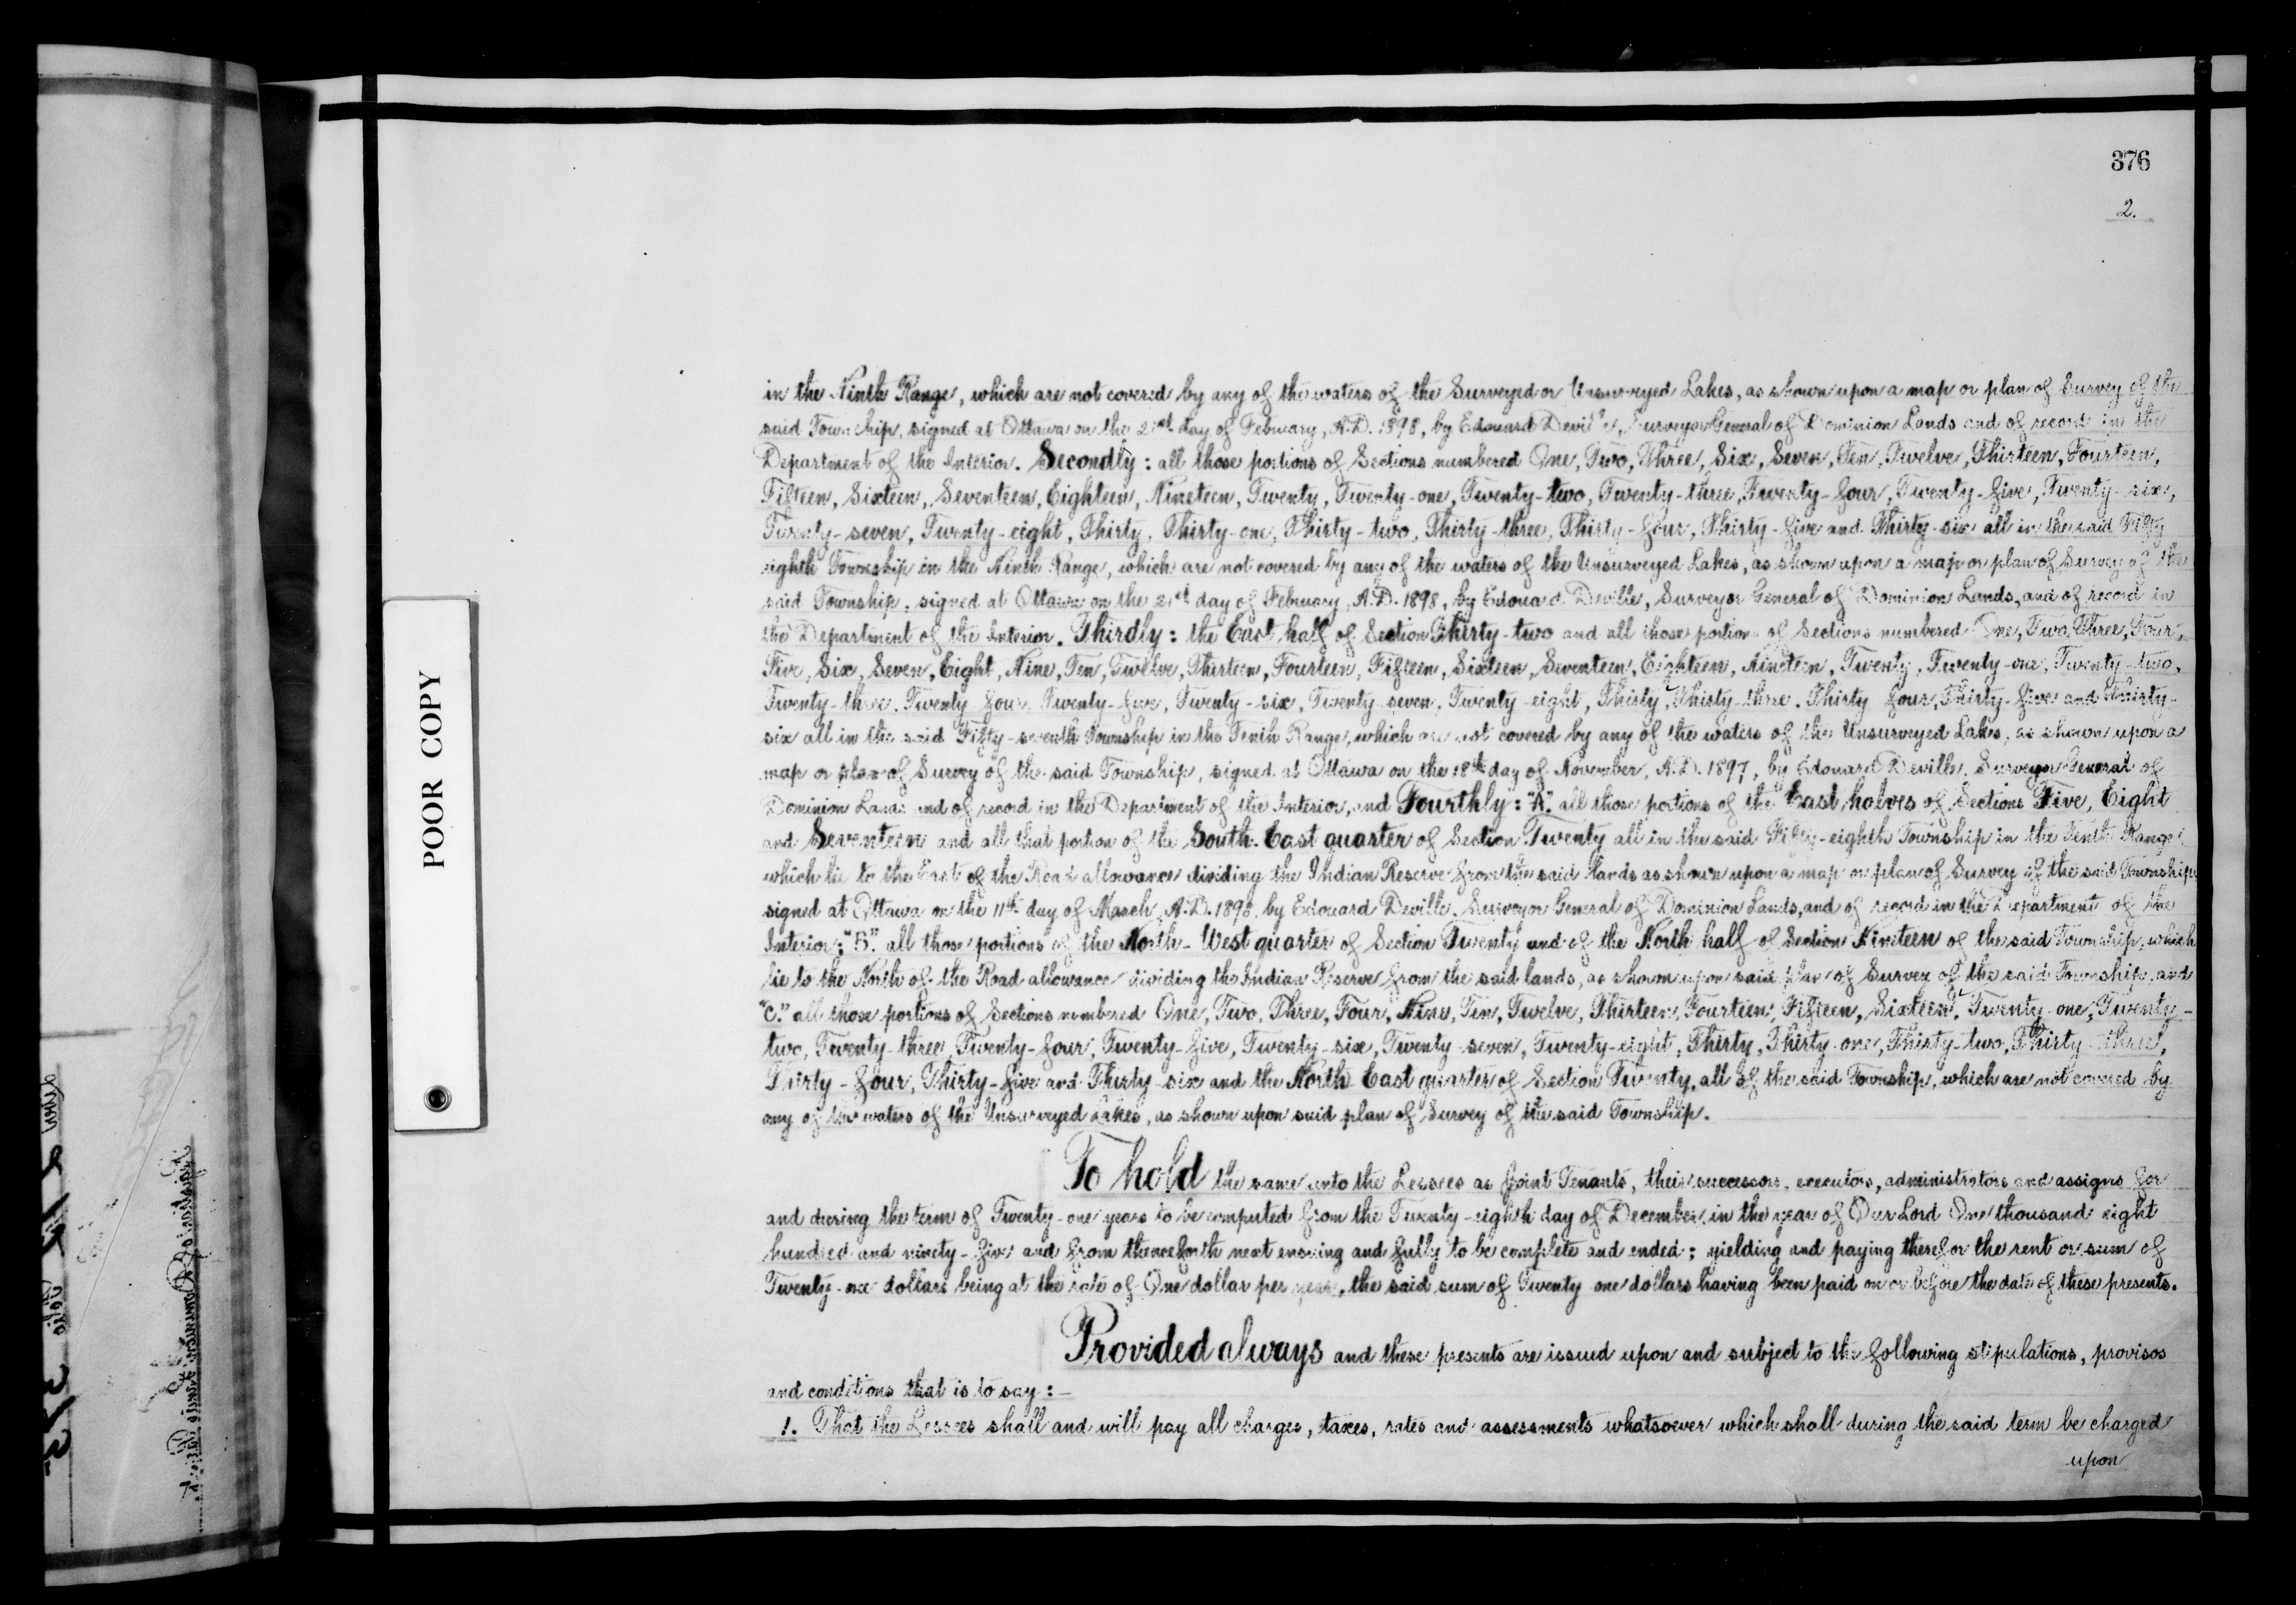 376
2.
POOR COPY
in the Ninth Range, which are not covered by any of the waters of the Surveyed or Unsurveyed Lakes, as shown upon a map or plan of Survey of the
said Township, signed at Ottawa on the 21st day of February, A.D. 1898, by Edouard Deville, Surveyor General of Dominion Lands and of record in the
Department of the Interior. Secondly: all those portions of Sections numbered One, Two, Three, Six, Seven, Ten, Twelve, Thirteen, Fourteen,
Fifteen, Sixteen, Seventeen, Eighteen, Nineteen, Twenty, Twenty-one, Twenty-two, Twenty-three, Twenty-four, Twenty-five, Twenty-six,
Twenty-seven, Twenty-eight, Thirty, Thirty-one, Thirty-two, Thirty-three, Thirty-four, Thirty-five and Thirty-six all in the said Fifty
eighth Township in the Ninth Range, which are not covered by any of the waters of the Unsurveyed Lakes, as shown upon a map or plan of Survey of the
said Township, signed at Ottawa on the 21st day of February, A.D. 1898, by Edouard Deville, Surveyor General of Dominion Lands, and of record in
the Department of the Interior. Thirdly: the East half of Section Thirty-two and all those portions of Sections numbered One, Two, Three, Four,
Five, Six, Seven, Eight, Nine, Ten, Twelve, Thirteen, Fourteen, Fifteen, Sixteen, Seventeen, Eighteen, Nineteen, Twenty, Twenty-one, Twenty-two,
Twenty-three, Twenty four, Twenty-five, Twenty-six, Twenty seven, Twenty-eight, Thirty, Thirty-three, Thirty four, Thirty-five and Thirty-
six all in the said Fifty-seventh Township in the Tenth Range, which are not covered by any of the waters of the Unsurveyed Lakes, as shown upon a
map or plan of Survey of the said Township, signed at Ottawa on the 18th day of November, A.D. 1897, by Edouard Deville, Surveyor General of
Dominion Lands and of record in the Department of the Interior, and Fourthly: "A." all those portions of the East halves of Sections Five, Eight
and Seventeen and all that portion of the South-East quarter of Section Twenty all in the said Fifty-eighth Township in the Tenth Range,
which lie to the East of the Road allowance dividing the Indian Reserve from the said lands as shown upon a map or plan of Survey of the said Township
signed at Ottawa on the 11th day of March, A.D. 1898, by Edouard Deville, Surveyor General of Dominion Lands, and of record in the Department of the
Interior; "B." all those portions of the North-West quarter of Section Twenty and of the North half of Section Nineteen of the said Township, which
lie to the North of the Road allowance dividing the Indian Reserve from the said lands, as shown upon said plan of Survey of the said Township, and
"C." all those portions of Sections numbered One, Two, Three, Four, Nine, Ten, Twelve, Thirteen, Fourteen, Fifteen, Sixteen, Twenty-one, Twenty-
two, Twenty-three, Twenty-four, Twenty-five, Twenty-six, Twenty-seven, Twenty-eight, Thirty, Thirty-one, Thirty-two, Thirty-three,
Thirty-four, Thirty-five and Thirty-six and the North East quarter of Section Twenty, all of the said Township, which are not covered by
any of the waters of the Unsurveyed Lakes, as shown upon said plan of Survey of the said Township.
To hold the same unto the Lessees as Joint Tenants, their successors, executors, administrators and assigns for
and during the term of Twenty-one years to be computed from the Twenty-eighth day of December, in the year of Our Lord One thousand eight
hundred and ninety-five and from thenceforth next ensuing and fully to be complete and ended; yielding and paying therefor the rent or sum of
Twenty-one dollars being at the rate of One dollar per year, the said sum of Twenty one dollars having been paid on or before the date of these presents.
Provided always and these presents are issued upon and subject to the following stipulations, provisos
and conditions that is to say:-
1. That the Lessees shall and will pay all charges, taxes, rates and assessments whatsoever which shall during the said term be charged
upon